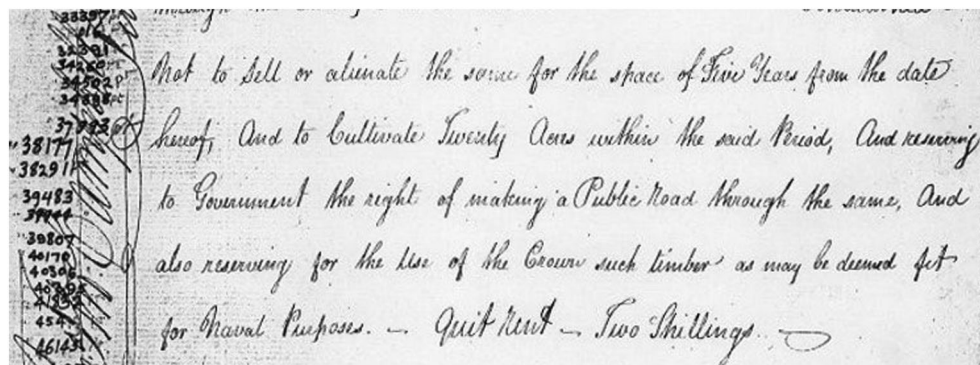 through the
33397
32391
34260
34502
34898 pt
37993 pt
38177
38291
39483
39807
40170
40306
46145
Not to Sell or alienate the same for the space of Five Years from the date
hereof, And to Cultivate Twenty Acres within the said Period, And reserving
to Government the right of making a Public Road through the same, And
also reserving for the Use of the Crown such timber as may be deemed fit
for Naval Purposes. — Quit Rent — Two Shillings.